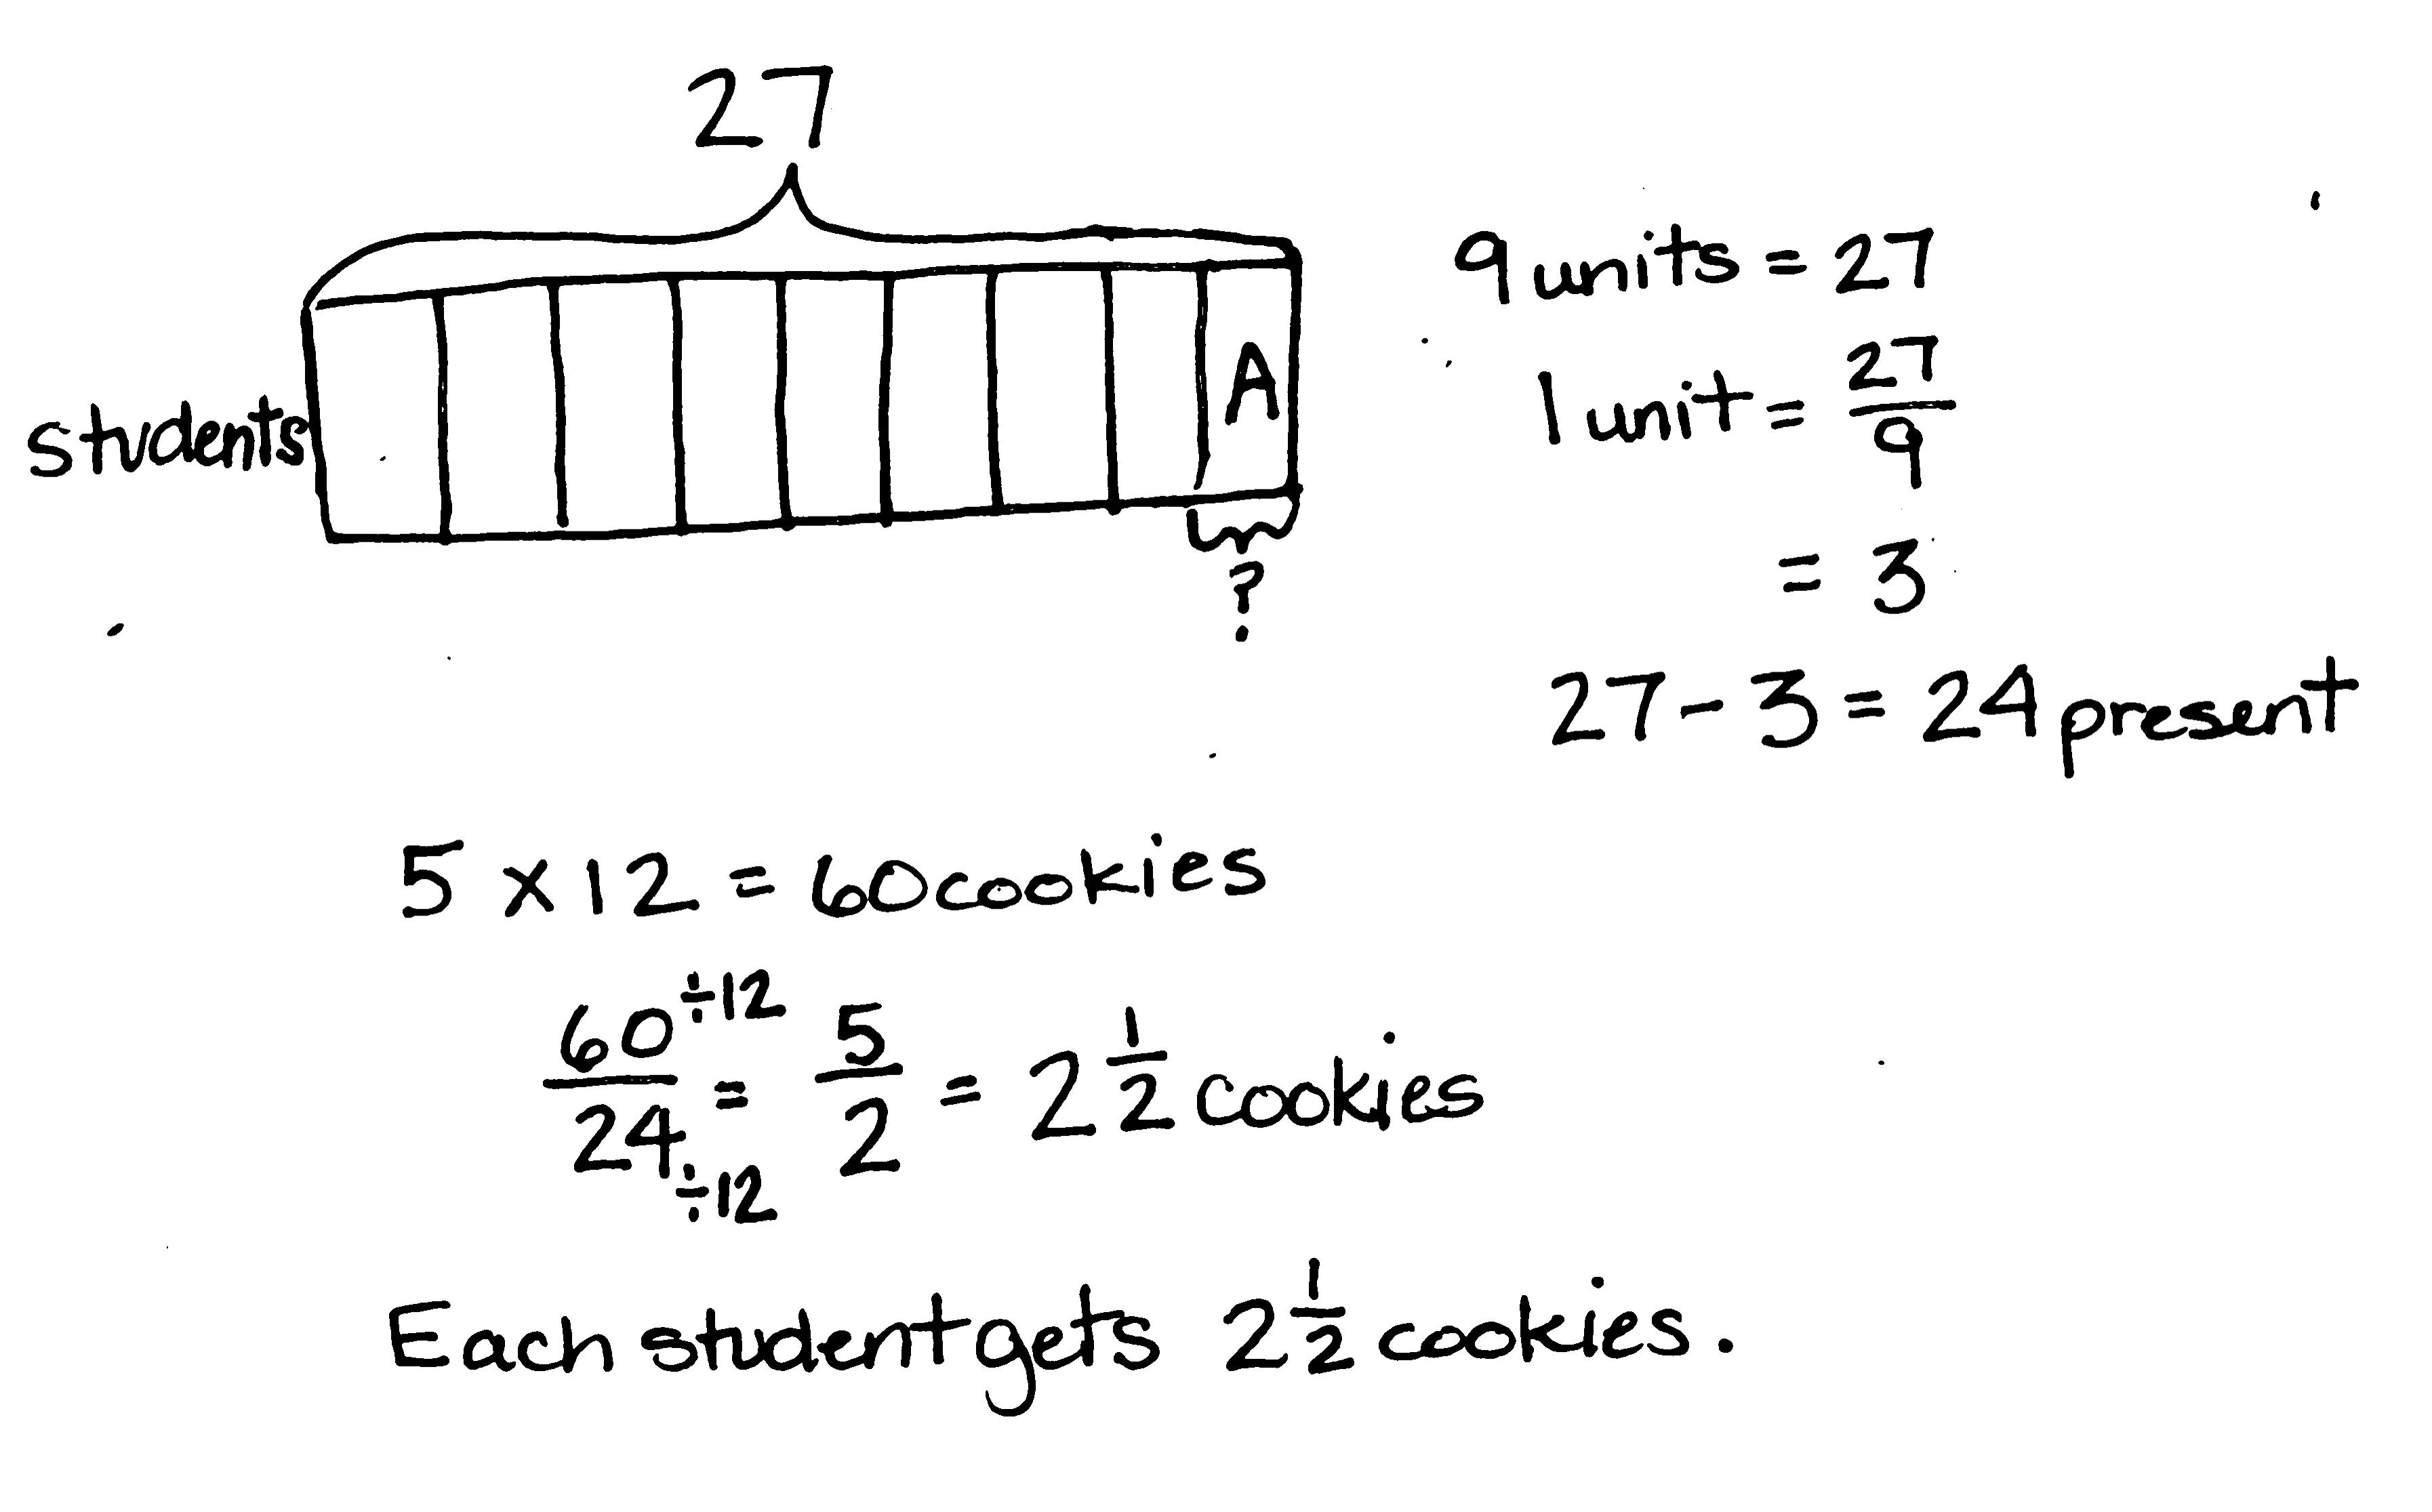 27
students
A
?
9 units = 27
1 unit = 27/9
= 3
27 - 3 = 24 present
5 x 12 = 60 cookies
60÷12/24÷12 = 5/2 = 2 1/2 cookies
Each student gets 2 1/2 cookies.